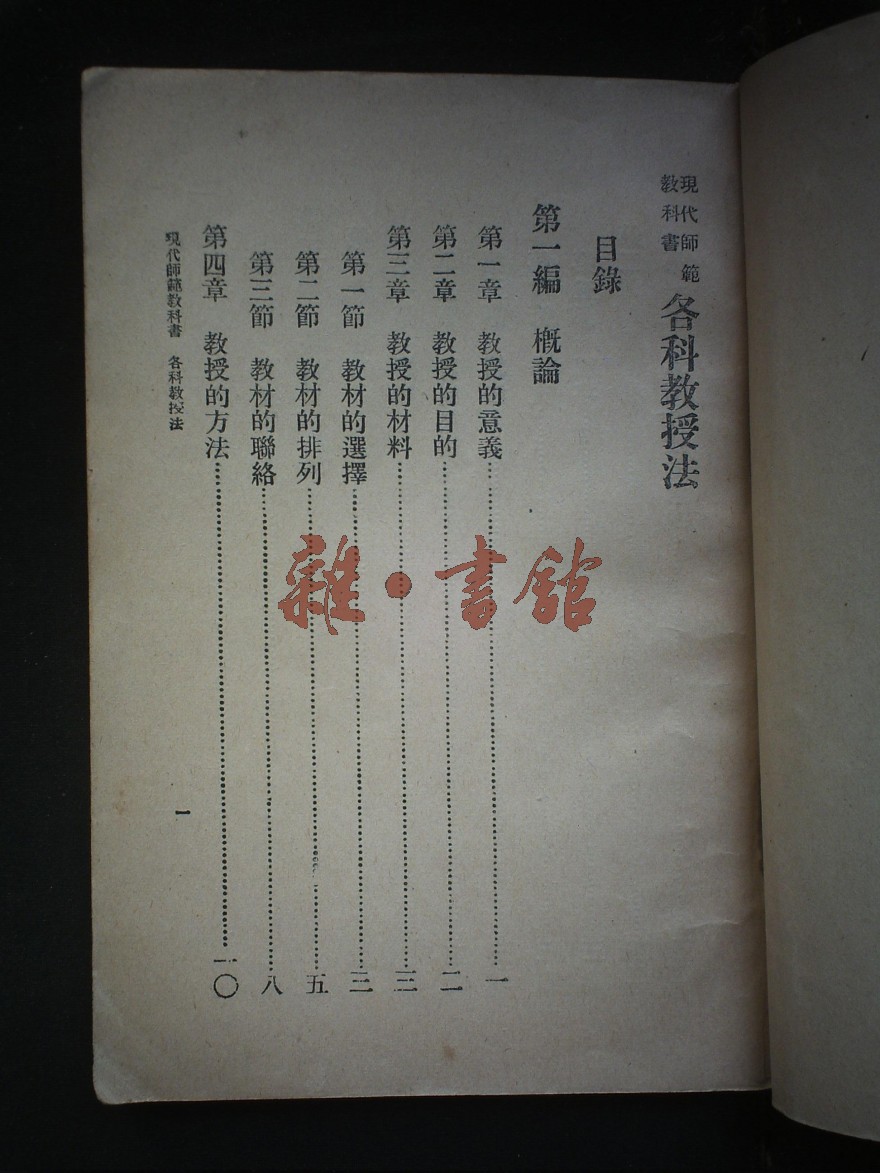 現代師範
教科書
各科教授法
目錄
第一編 概論
第一章 教授的意義……一
第二章 教授的目的……二
第三章 教授的材料……三
第一節 教材的選擇……三
第二節 教材的排列……五
第三節 教材的聯絡……八
第四章 教授的方法……一〇
現代師範教科書 各科教授法
一
雜·書館